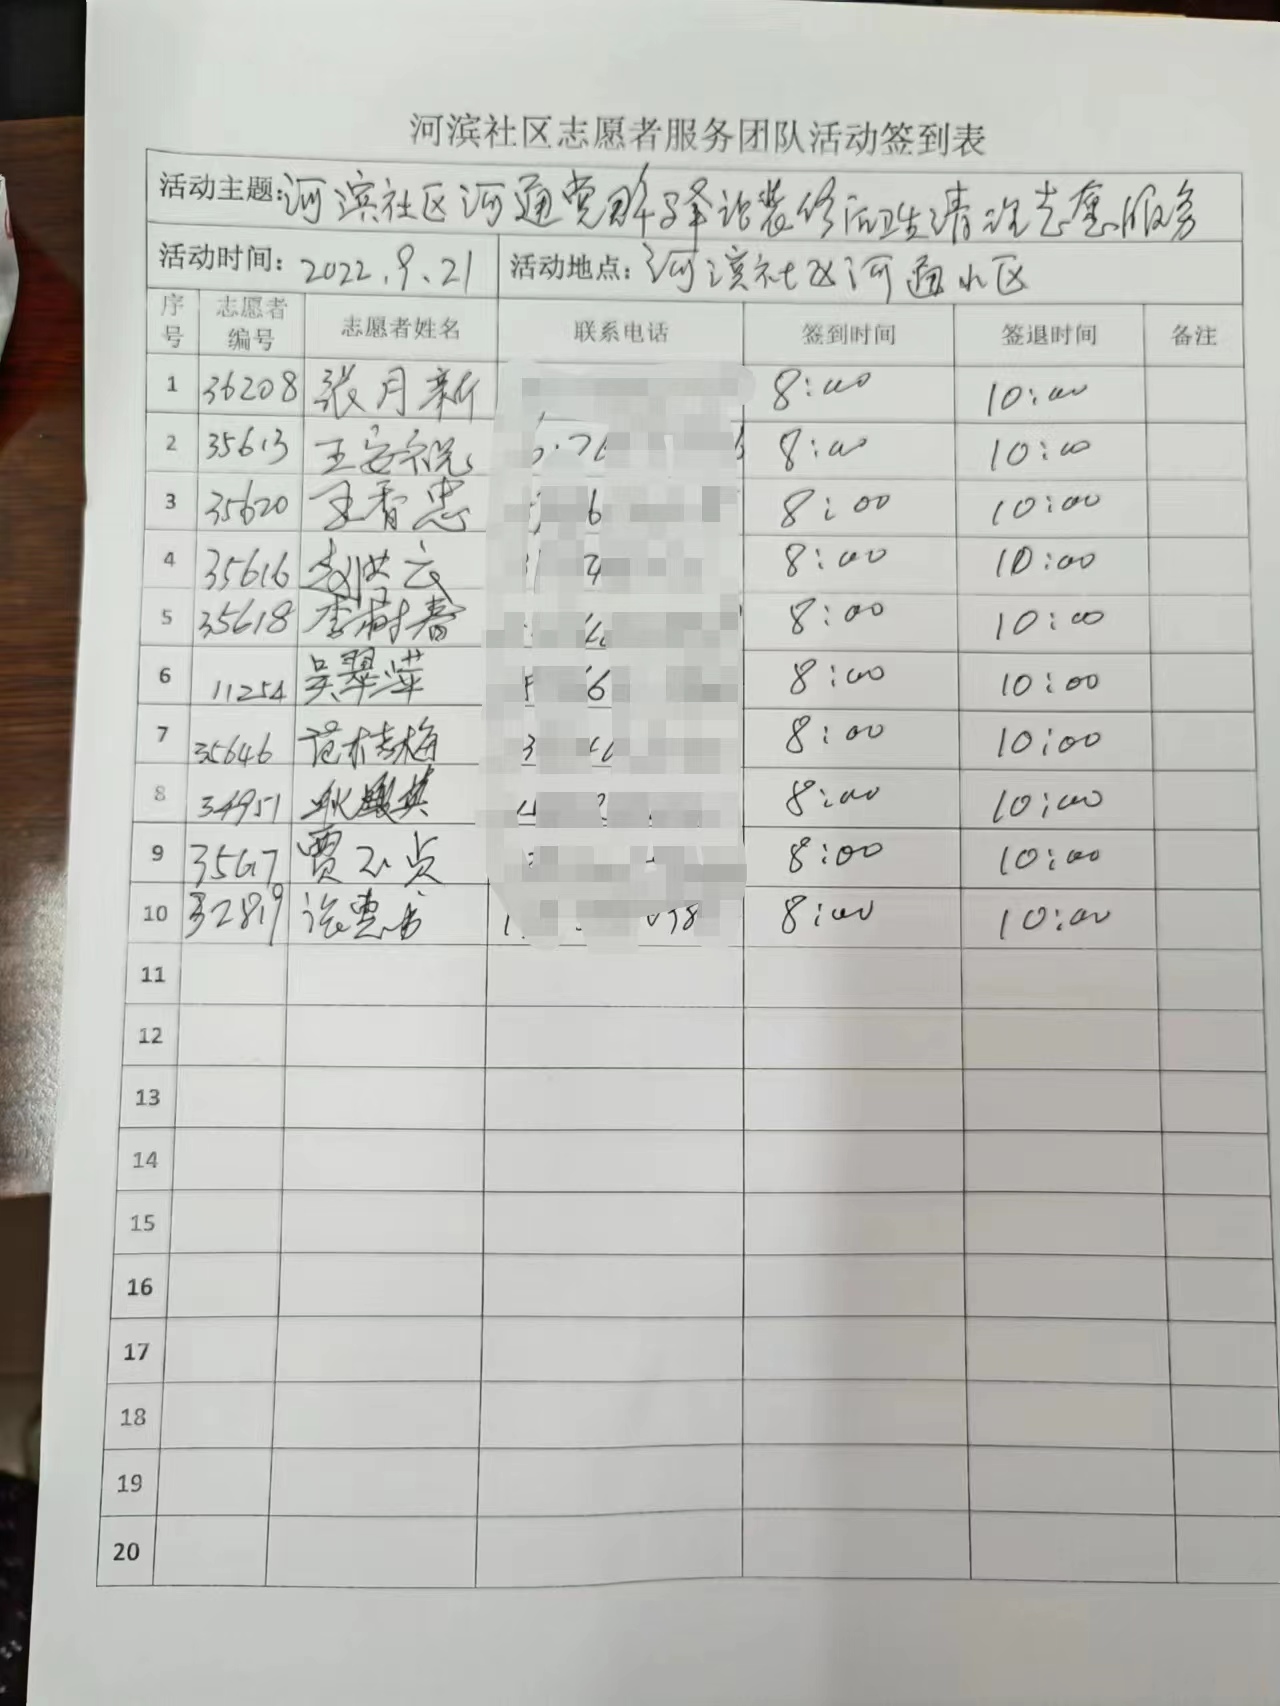 河滨社区志愿者服务团队活动签到表
活动主题:河滨社区河通党群驿站装修后卫生清洁志愿服务
活动时间: 2022.9.21 活动地点: 河滨社区河通小区
序号 志愿者编号 志愿者姓名 联系电话 签到时间 签退时间 备注
1 36208 张月新 8:00 10:00
2 35613 王安祝 8:00 10:00
3 35620 王香忠 8:00 10:00
4 35616 赵洪云 8:00 10:00
5 35618 李树春 8:00 10:00
6 11254 吴翠萍 8:00 10:00
7 35646 范桂梅 8:00 10:00
8 34951 8:00 10:00
9 贾 8:00 10:00
10 32819 8:00 10:00
11
12
13
14
15
16
17
18
19
20